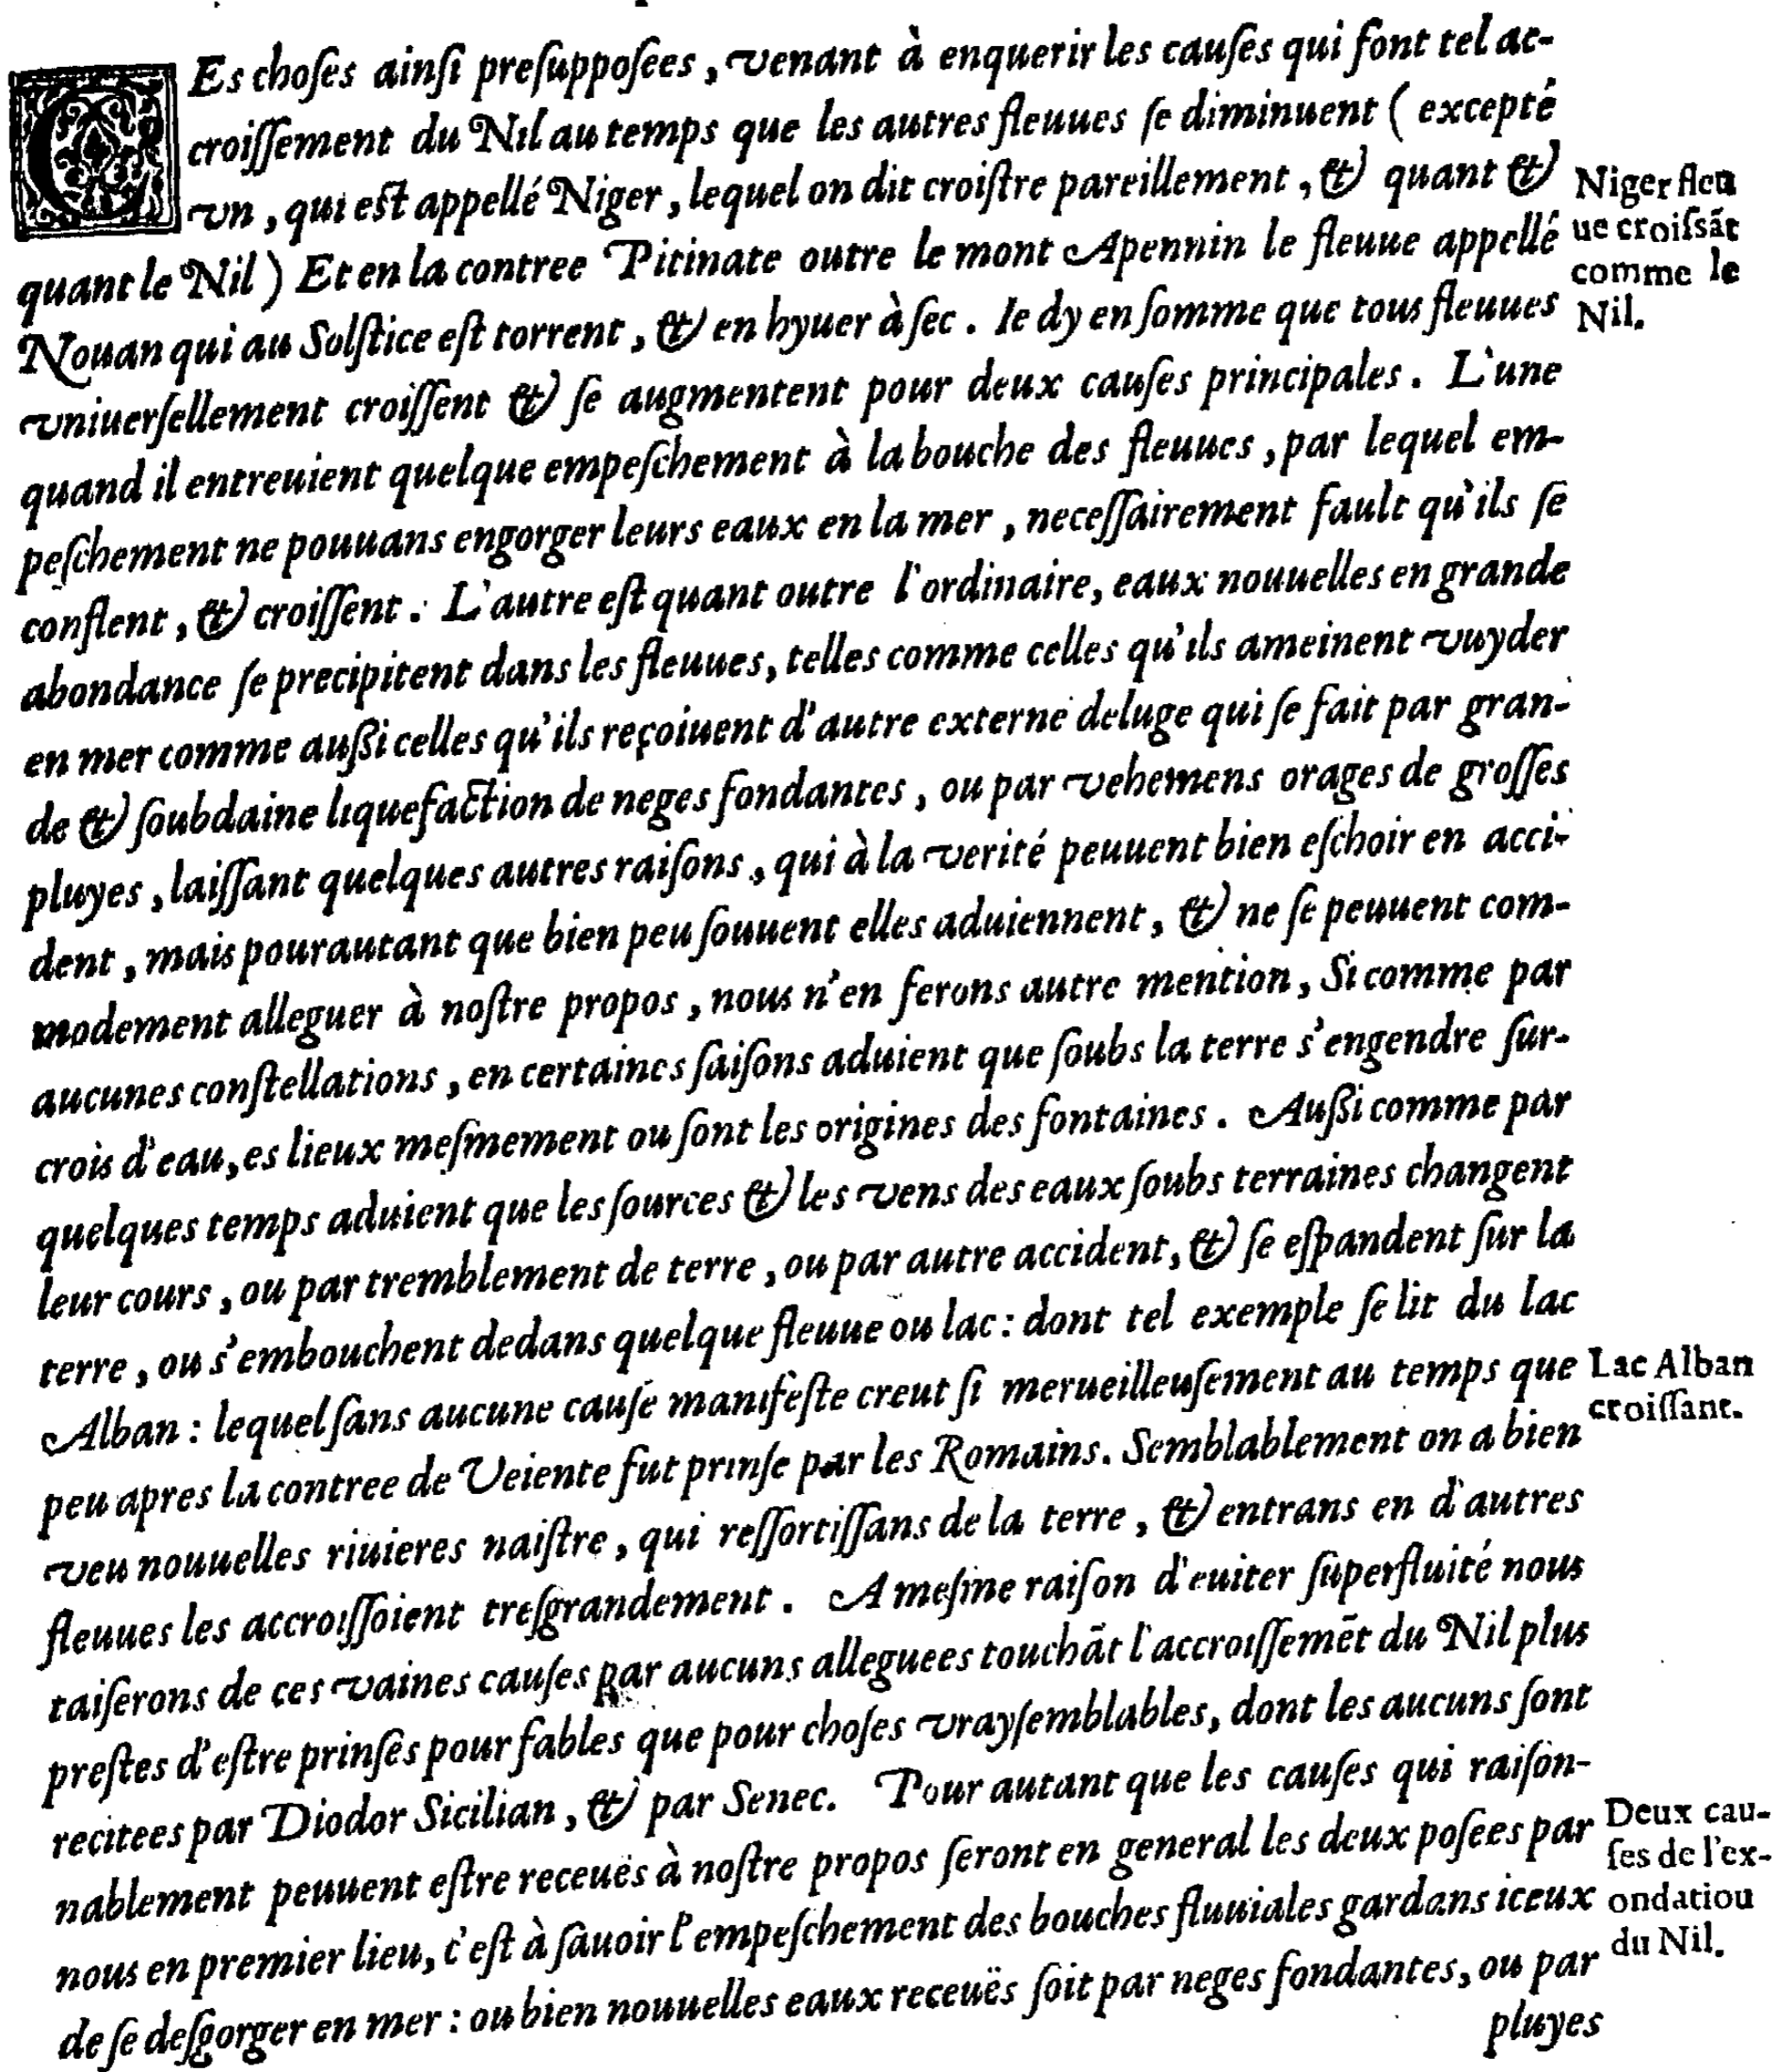 CEs choſes ainſi preſuppoſees, venant à enquerir les cauſes qui font tel ac-
croiſſement du Nil au temps que les autres fleuues ſe diminuent ( excepté
vn, qui eſt appellé Niger, lequel on dit croiſtre pareillement, & quant &
quant le Nil ) Et en la contree Pitinate outre le mont Apennin le fleuue appellé
Nouan qui au Solſtice eſt torrent, & en hyuer à ſec. Ie dy en ſomme que tous fleuues
vniuerſellement croiſſent & ſe augmentent pour deux cauſes principales. L'une
quand il entreuient quelque empeſchement à la bouche des fleuues, par lequel em-
peſchement ne pouuans engorger leurs eaux en la mer, neceſſairement fault qu'ils ſe
conflent, & croiſſent. L'autre eſt quant outre l'ordinaire, eaux nouuelles en grande
abondance ſe precipitent dans les fleuues, telles comme celles qu'ils ameinent vuyder
en mer comme auſſi celles qu'ils reçoiuent d'autre externe deluge qui ſe fait par gran-
de & ſoubdaine liquefaction de neges fondantes, ou par vehemens orages de groſſes
pluyes, laiſſant quelques autres raiſons, qui à la verité peuuent bien eſchoir en acci-
dent, mais pourautant que bien peu ſouuent elles aduiennent, & ne ſe peuuent com-
modement alleguer à noſtre propos, nous n'en ferons autre mention, Si comme par
aucunes conſtellations, en certaines ſaiſons aduient que ſoubs la terre s'engendre ſur-
crois d'eau, es lieux meſmement ou ſont les origines des fontaines. Auſſi comme par
quelques temps aduient que les ſources & les vens des eaux ſoubs terraines changent
leur cours, ou par tremblement de terre, ou par autre accident, & ſe eſpandent ſur la
terre, ou s'embouchent dedans quelque fleuue ou lac: dont tel exemple ſe lit du lac
Alban: lequel ſans aucune cauſe manifeſte creut ſi merueilleuſement au temps que
peu apres la contree de Veiente fut prinſe par les Romains. Semblablement on a bien
veu nouuelles riuieres naiſtre, qui reſſortiſſans de la terre, & entrans en d'autres
fleuues les accroiſſoient treſgrandement. A meſme raiſon d'euiter ſuperfluité nous
taiſerons de ces vaines cauſes par aucuns alleguees touchãt l'accroiſſemẽt du Nil plus
preſtes d'eſtre prinſes pour fables que pour choſes vrayſemblables, dont les aucuns ſont
recitees par Diodor Sicilian, & par Senec. Pour autant que les cauſes qui raiſon-
nablement peuuent eſtre receues à noſtre propos ſeront en general les deux poſees par
nous en premier lieu, c'eſt à ſauoir l'empeſchement des bouches fluuiales gardans iceux
de ſe deſgorger en mer: ou bien nouuelles eaux receuës ſoit par neges fondantes, ou par
pluyes
Niger fleu
ue croiſsãt
comme le
Nil.
Lac Alban
croiſſant.
Deux cau-
ſes de l'ex-
ondatiou
du Nil.